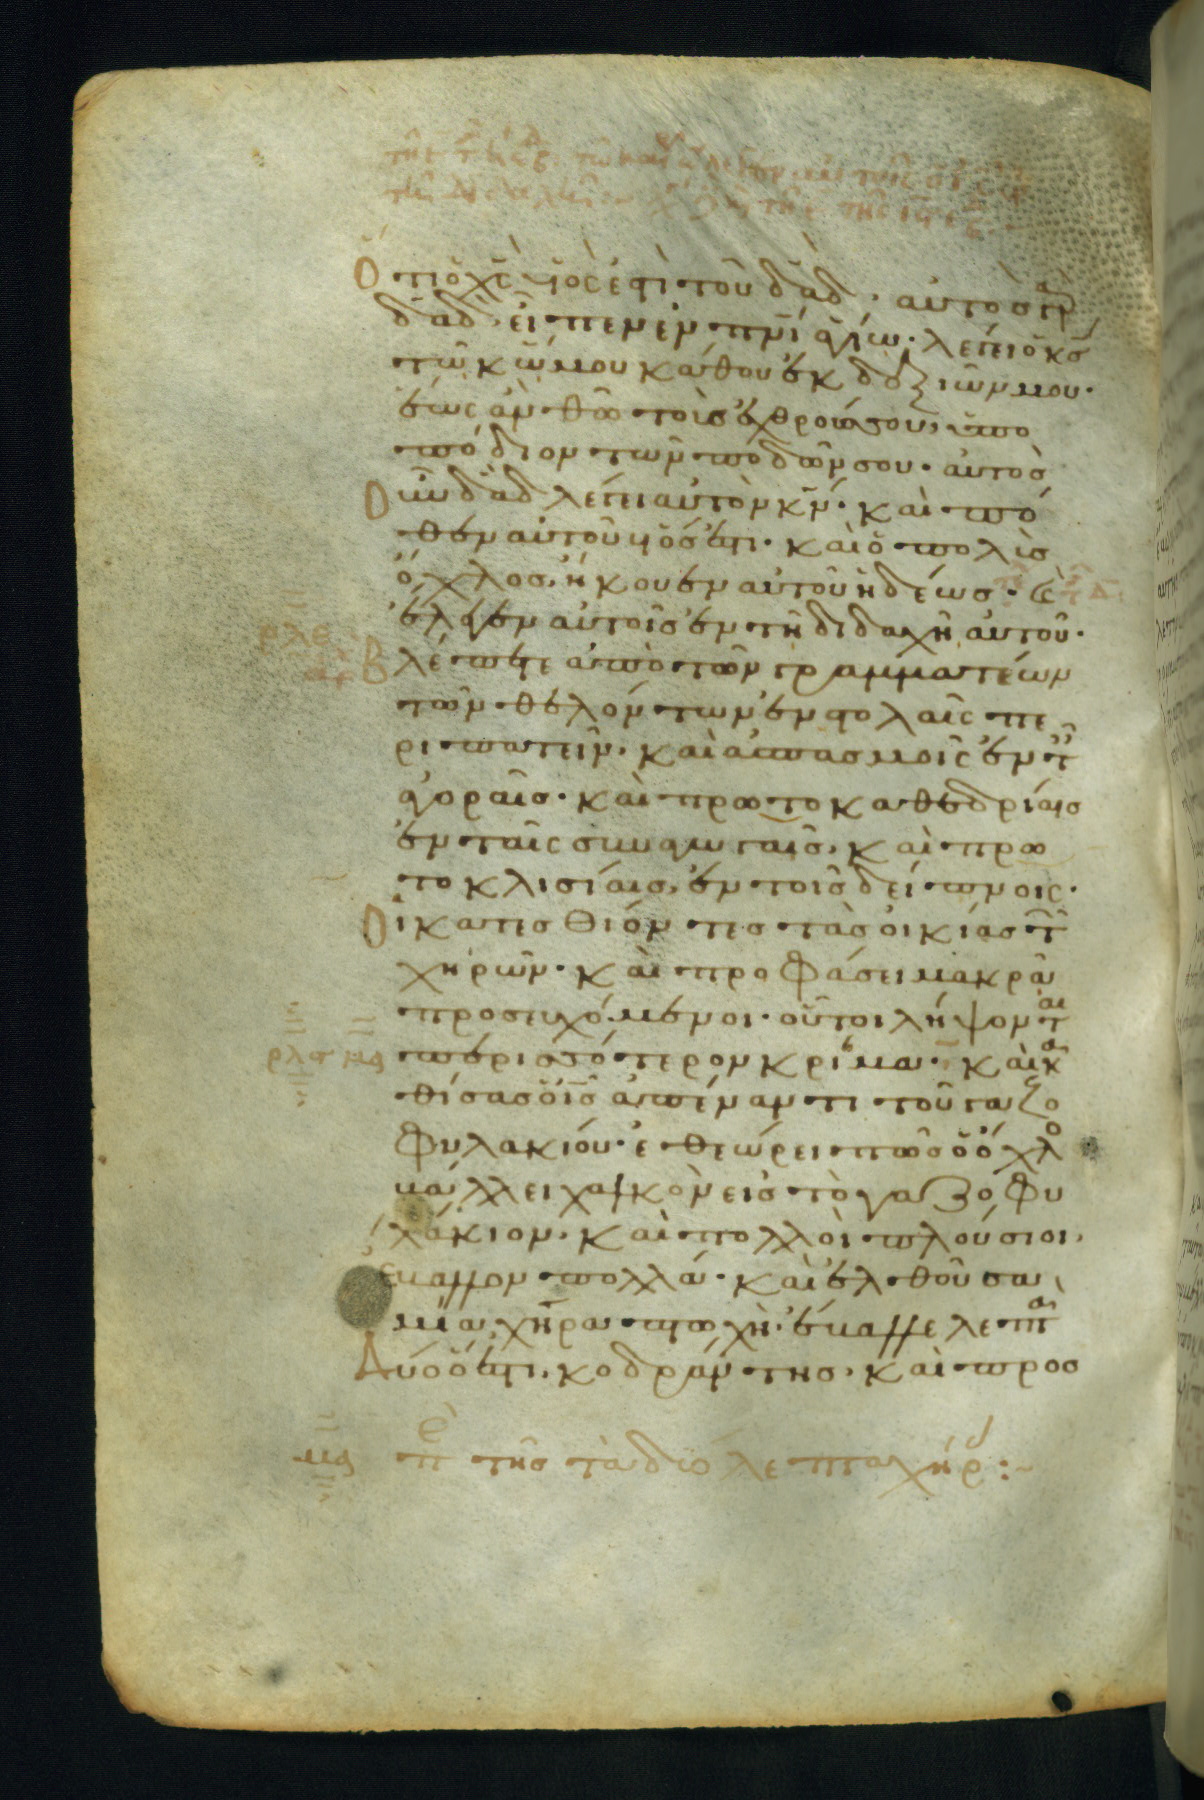 Ὅτι ὁ χς̅ υἱός ἐστι τοῦ δα̅δ· αὐτὸς γὰρ
δα̅δ· εἶπεν ἐν πνι̅ ἁγίω· λέγει ὁ κς̅
τῶ κω̅ μου κάθου ἐκ δεξιῶν μου·
ἕως ἂν θῶ τοὺς ἐχθρούς σου, ὑπο
πόδιον τῶν ποδῶν σου· αὐτὸς
οὖν δα̅δ λέγει αὐτὸν κν̅· καὶ πό
θεν αὐτοῦ υἱός ἐστι· καὶ ὁ πολὺς
ὄχλος, ἤκουεν αὐτοῦ ἡδέως· Καὶ
ἔλεγεν αὐτοῖς ἐν τῆ διδαχῆ αὐτοῦ·
ρλε
Βλέπετε ἀπὸ τῶν γραμματέων
τῶν θελόντων ἐν στολαῖς πε
ριπατεῖν· καὶ ἀσπασμοὺς ἐν τ
ἀγοραῖς· καὶ πρωτοκαθεδρίαις
ἐν ταῖς συναγωγαῖς, καὶ πρω
τοκλισίαις, ἐν τοῖς δείπνοις·
Οἱ κατεσθίοντες τὰς οἰκίας τ
χηρῶν· καὶ προφάσει μακρᾶ
προσευχόμενοι· οὗτοι λήψονται
ρλϛ μα περισσότερον κρίμα· καὶ κα
θίσας ὁ ις̅ ἀπέναντι τοῦ γαζο
φυλακίου· ἐθεώρει πῶς ὁ ὄχλο
βάλλει χαλκὸν εἰς τὸ γαζοφυ
λάκιον· καὶ πολλοὶ πλούσιοι,
ἔβαλλον πολλά· καὶ ἐλθοῦσα
μία χήρα πτωχὴ· ἔβαλλε λεπτὰ
Δύο ὅ ἐστι, κοδράντης· καὶ προσ
μα πε τῆς τὰ δύο λεπτα χήρ :~